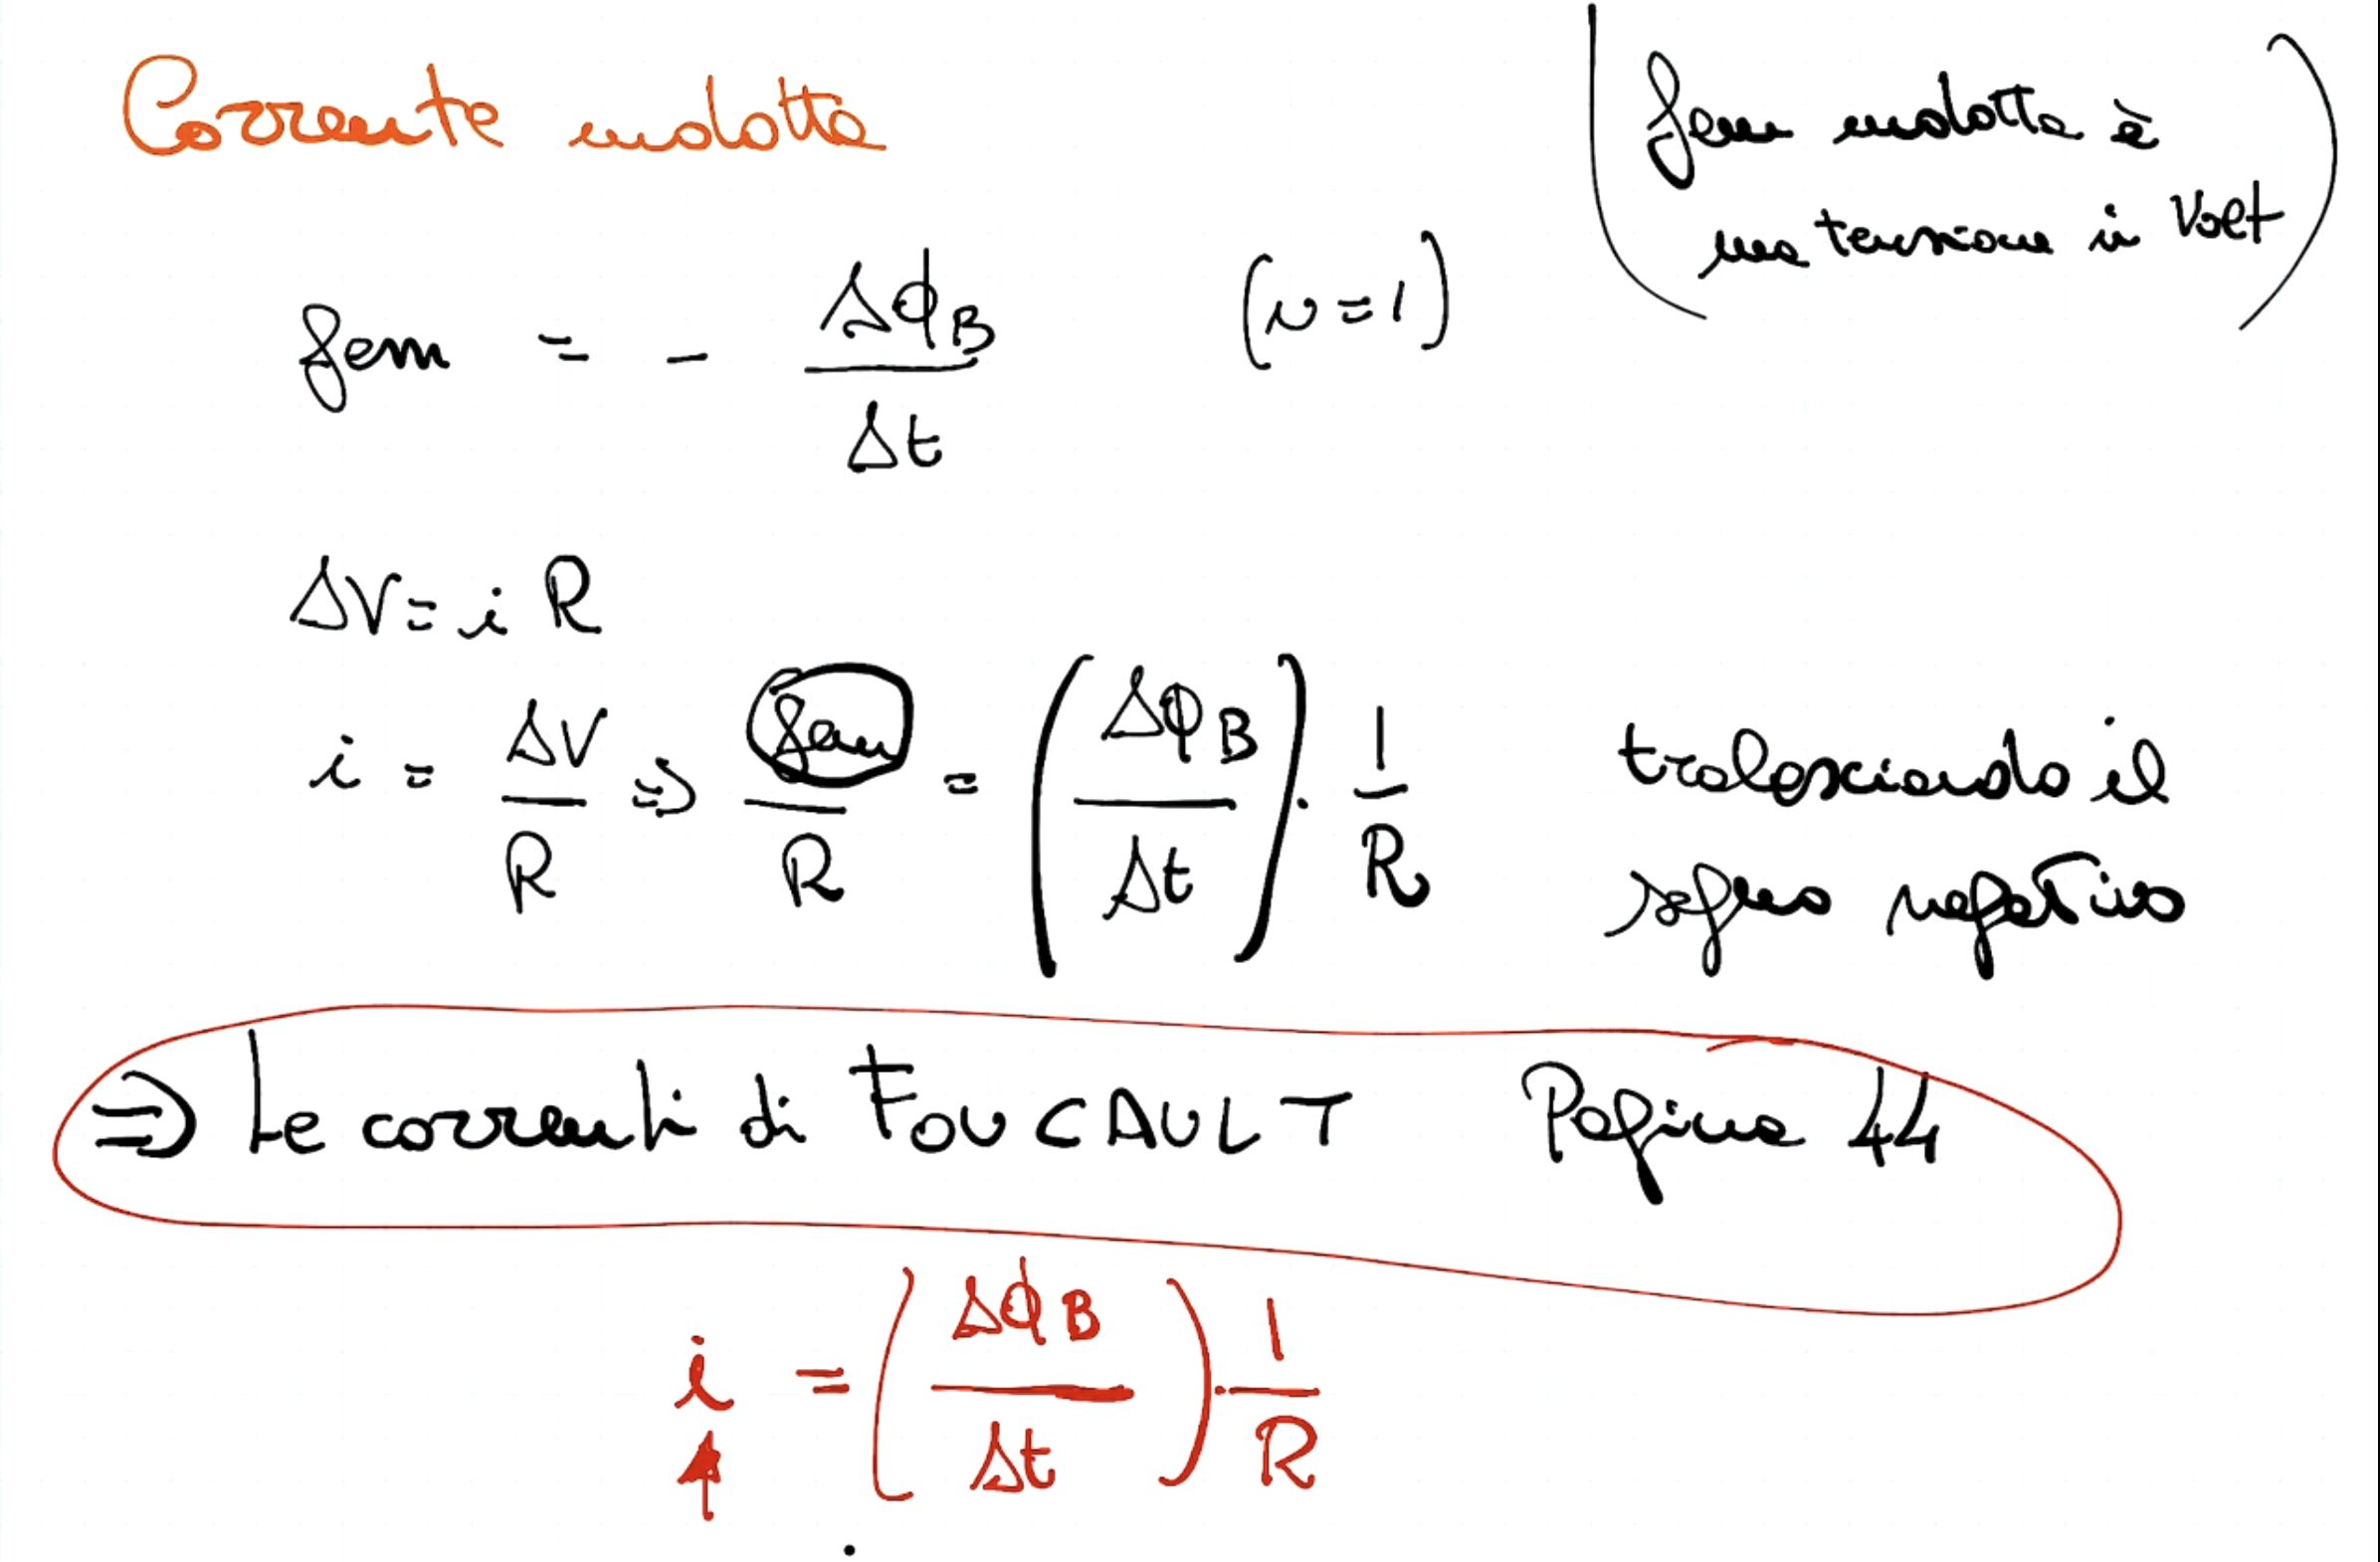 Corrente indotta
(fem indotta è
una tensione in Volt)
fem = - ΔΦB / Δt (N=1)
ΔV = i R
i = ΔV / R ⇒ fem / R = (ΔΦB / Δt) · 1 / R tralasciando il
segno negativo
⇒ Le correnti di FOUCAULT Pagina 44
i = (ΔΦB / Δt) · 1 / R